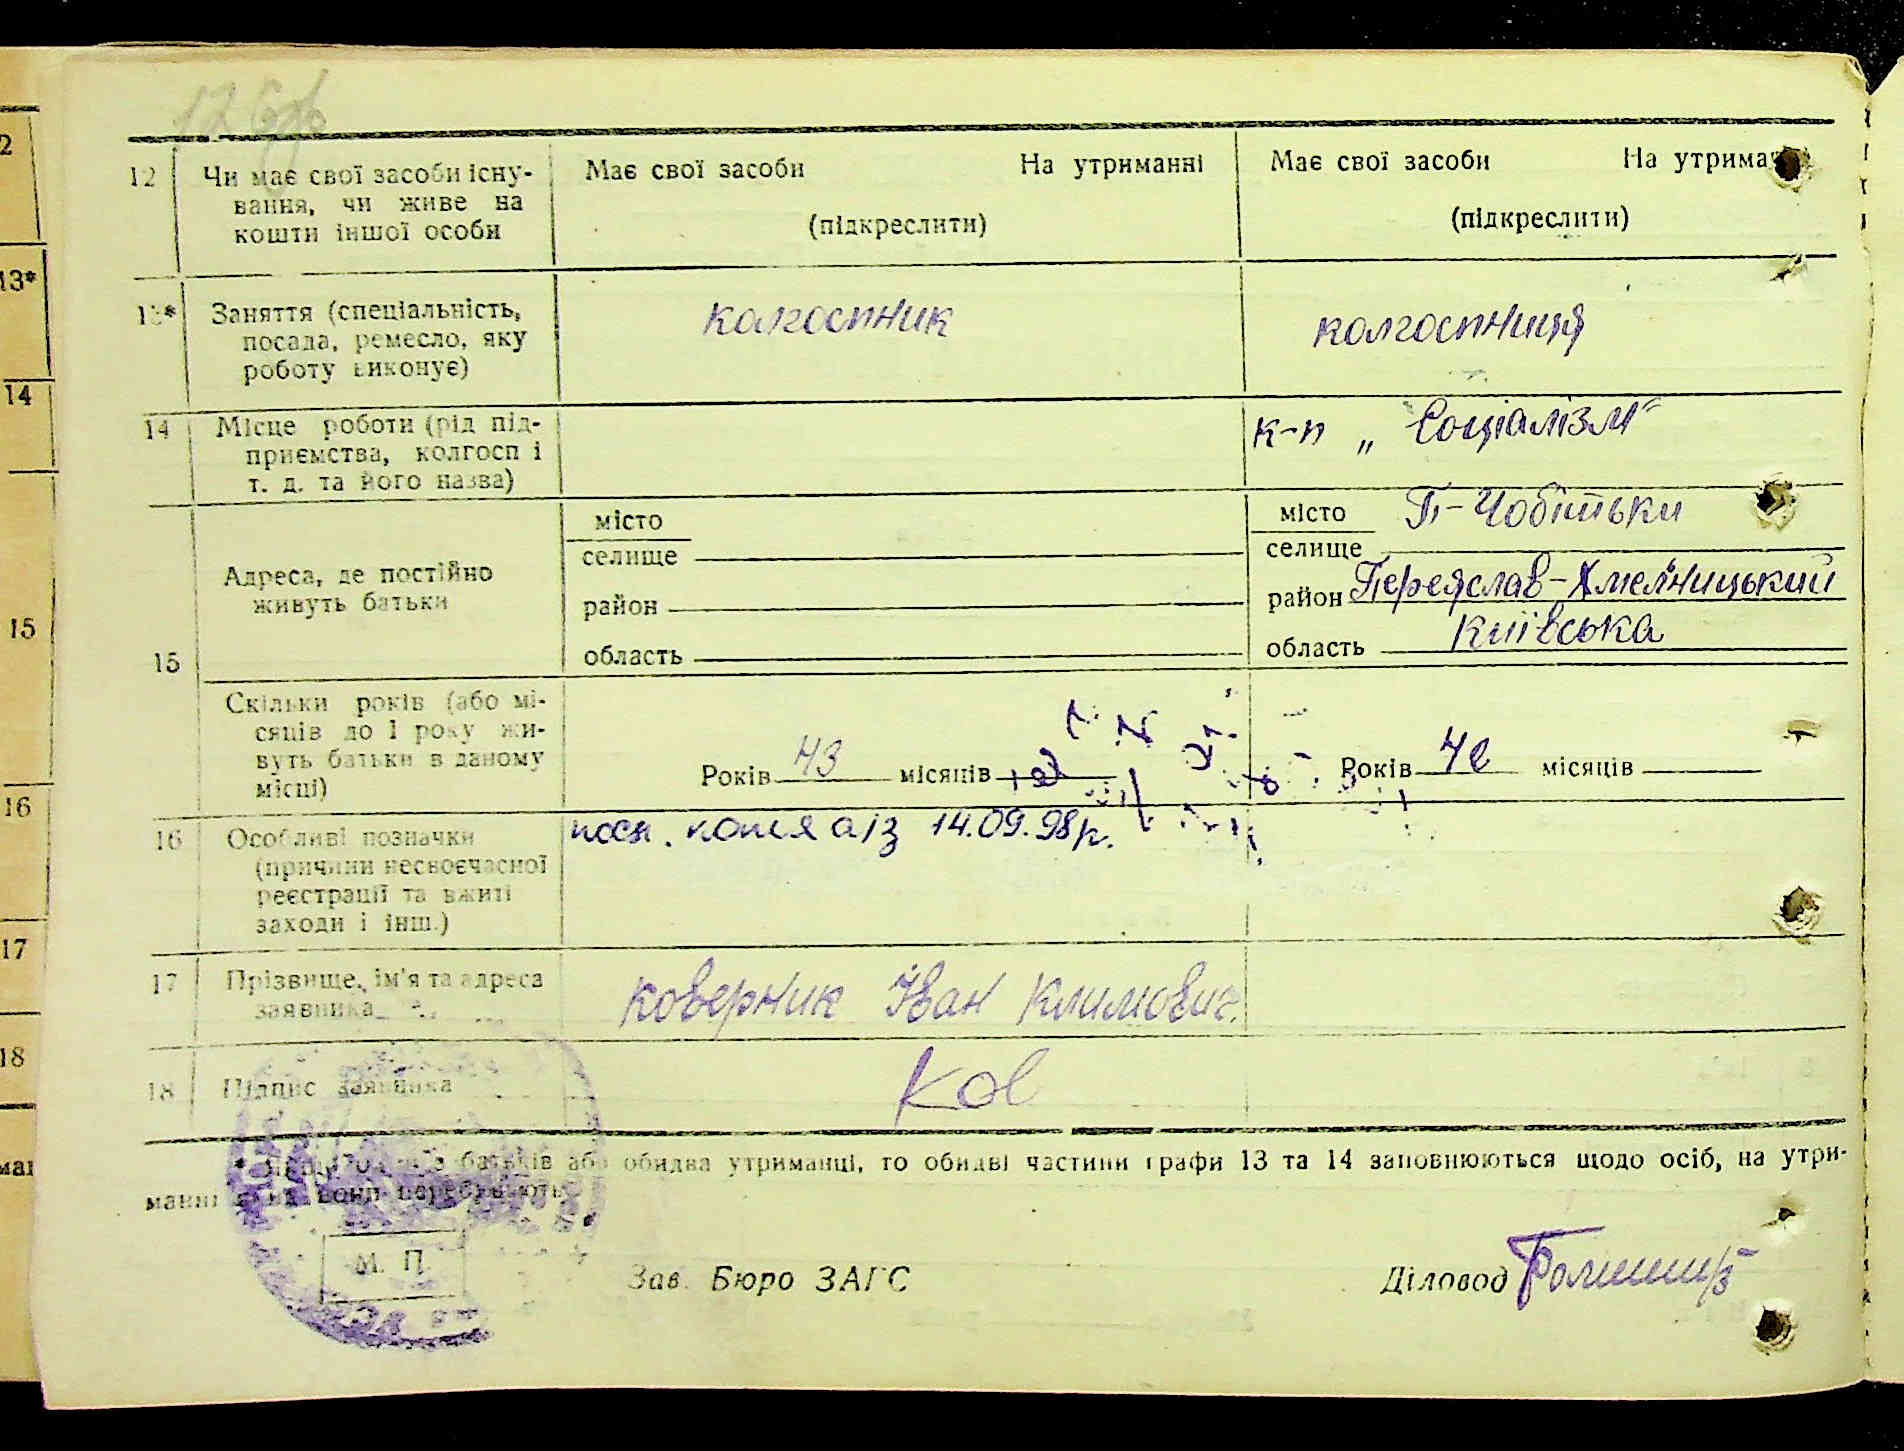 12 Чи має свої засоби існу-
вання, чи живе на
кошти іншої особи
Має свої засоби На утриманні
(підкреслити)
Має свої засоби На утриман
(підкреслити)
13* Заняття (спеціальність,
посада, ремесло, яку
роботу виконує)
колгоспник
колгоспниця
14 Місце роботи (рід під-
приємства, колгосп і
т. д. та його назва)
к-п „Соціалізм"
15
Адреса, де постійно
живуть батьки
місто
селище
район
область
місто П-Чобітьки
селище
район Переяслав-Хмельницький
область Київська
Скільки років (або мі-
сяців до 1 року жи-
вуть батьки в даному
місці)
Років 43 місяців
Років місяців
16 Особливі позначки
(причини несвоєчасної
реєстрації та вжиті
заходи і інш.)
копія а/з 14.09.98р.
17 Прізвище, ім'я та адреса
заявника
Коверник Іван Климович.
18 Підпис заявника
Ков
батьків або обидва утриманці, то обидві частини графи 13 та 14 заповнюються щодо осіб, на утри-
манні вони перебувають
М. П.
Зав. Бюро ЗАГС
Діловод
2
13*
14
15
16
17
18